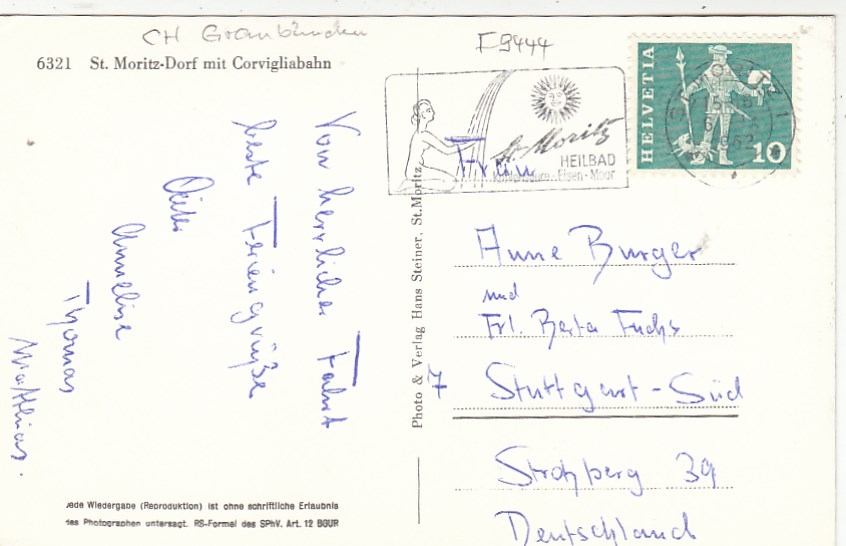 CH Graubünden
F9444
6321 St. Moritz-Dorf mit Corvigliabahn
HELVETIA
10
St. Moritz
HEILBAD
Eisen-Moor
Von herrlicher Fahrt
beste Feriengrüße
Annelise
Thomas
Matthias.
Photo & Verlag Hans Steiner, St.Moritz
Frau
Anne Burger
und
Frl. Berta Fuchs
7 Stuttgart-Süd
39
Deutschland
jede Wiedergabe (Reproduktion) ist ohne schriftliche Erlaubnis
des Photographen untersagt. RS-Formel des SPhV. Art. 12 BGUR